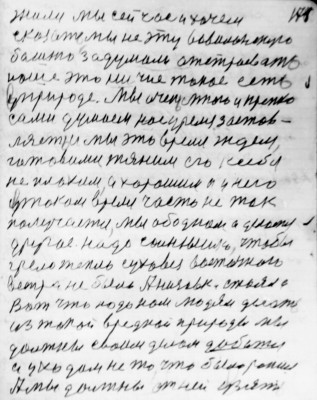 жили мы сейчас и хочем
сказать мы не эту вавилонскую
башню задумали отстраивать
наше это ни чие такое есть
в природе. Мы
сами думаем нас время застав-
ляет и мы это время ждем
готовими тяним его к себе
не плохим а хорошим а у него
в таком время часто не так
получается, мы об одном а
другое. надо чтобы
грело тепло суховея восточного
ветра не было Ани
Вот что надо нам людям делать
из такой вредной природы мы
должны своим делом добится
а уходам не то что было раньше
А мы должны от ней взять